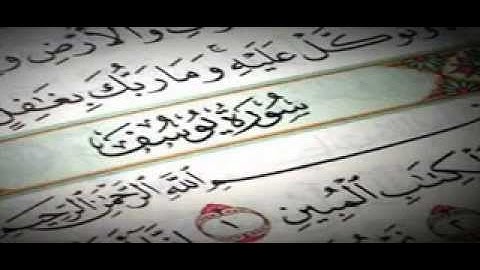 وَالْأَرْضِ وَ
وَتَوَكَّلْ عَلَيْهِ وَمَا رَبُّكَ بِغَٰفِلٍ
سُورَةُ يُوسُفَ
بِسْمِ اللَّهِ الرَّحْمَٰنِ الرَّحِيمِ
الْكِتَٰبِ الْمُبِينِ ١ إِنَّا
٢